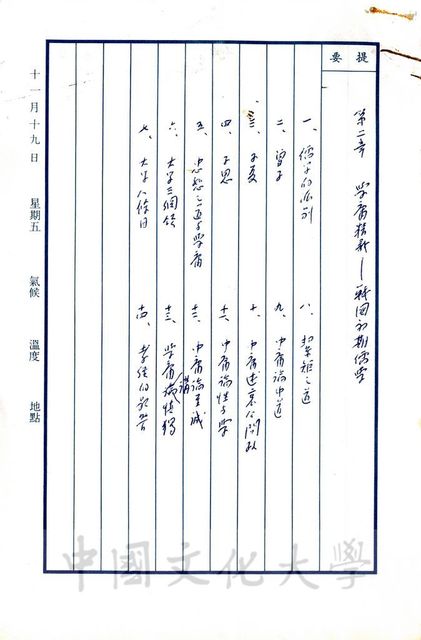 提要
第二章 學庸精義—戰國初期儒學
一、儒學的派別
二、曾子
三、子夏
四、子思
五、忠恕之道與學庸
六、大學三綱領
七、大學八條目
八、挈矩之道
九、中庸論中道
十、中庸述哀公問政
十一、中庸論性與學
十二、中庸論至誠
十三、學庸講慎獨
十四、孝經的影響
十一月十九日 星期五 氣候 溫度 地點
中國文化大學